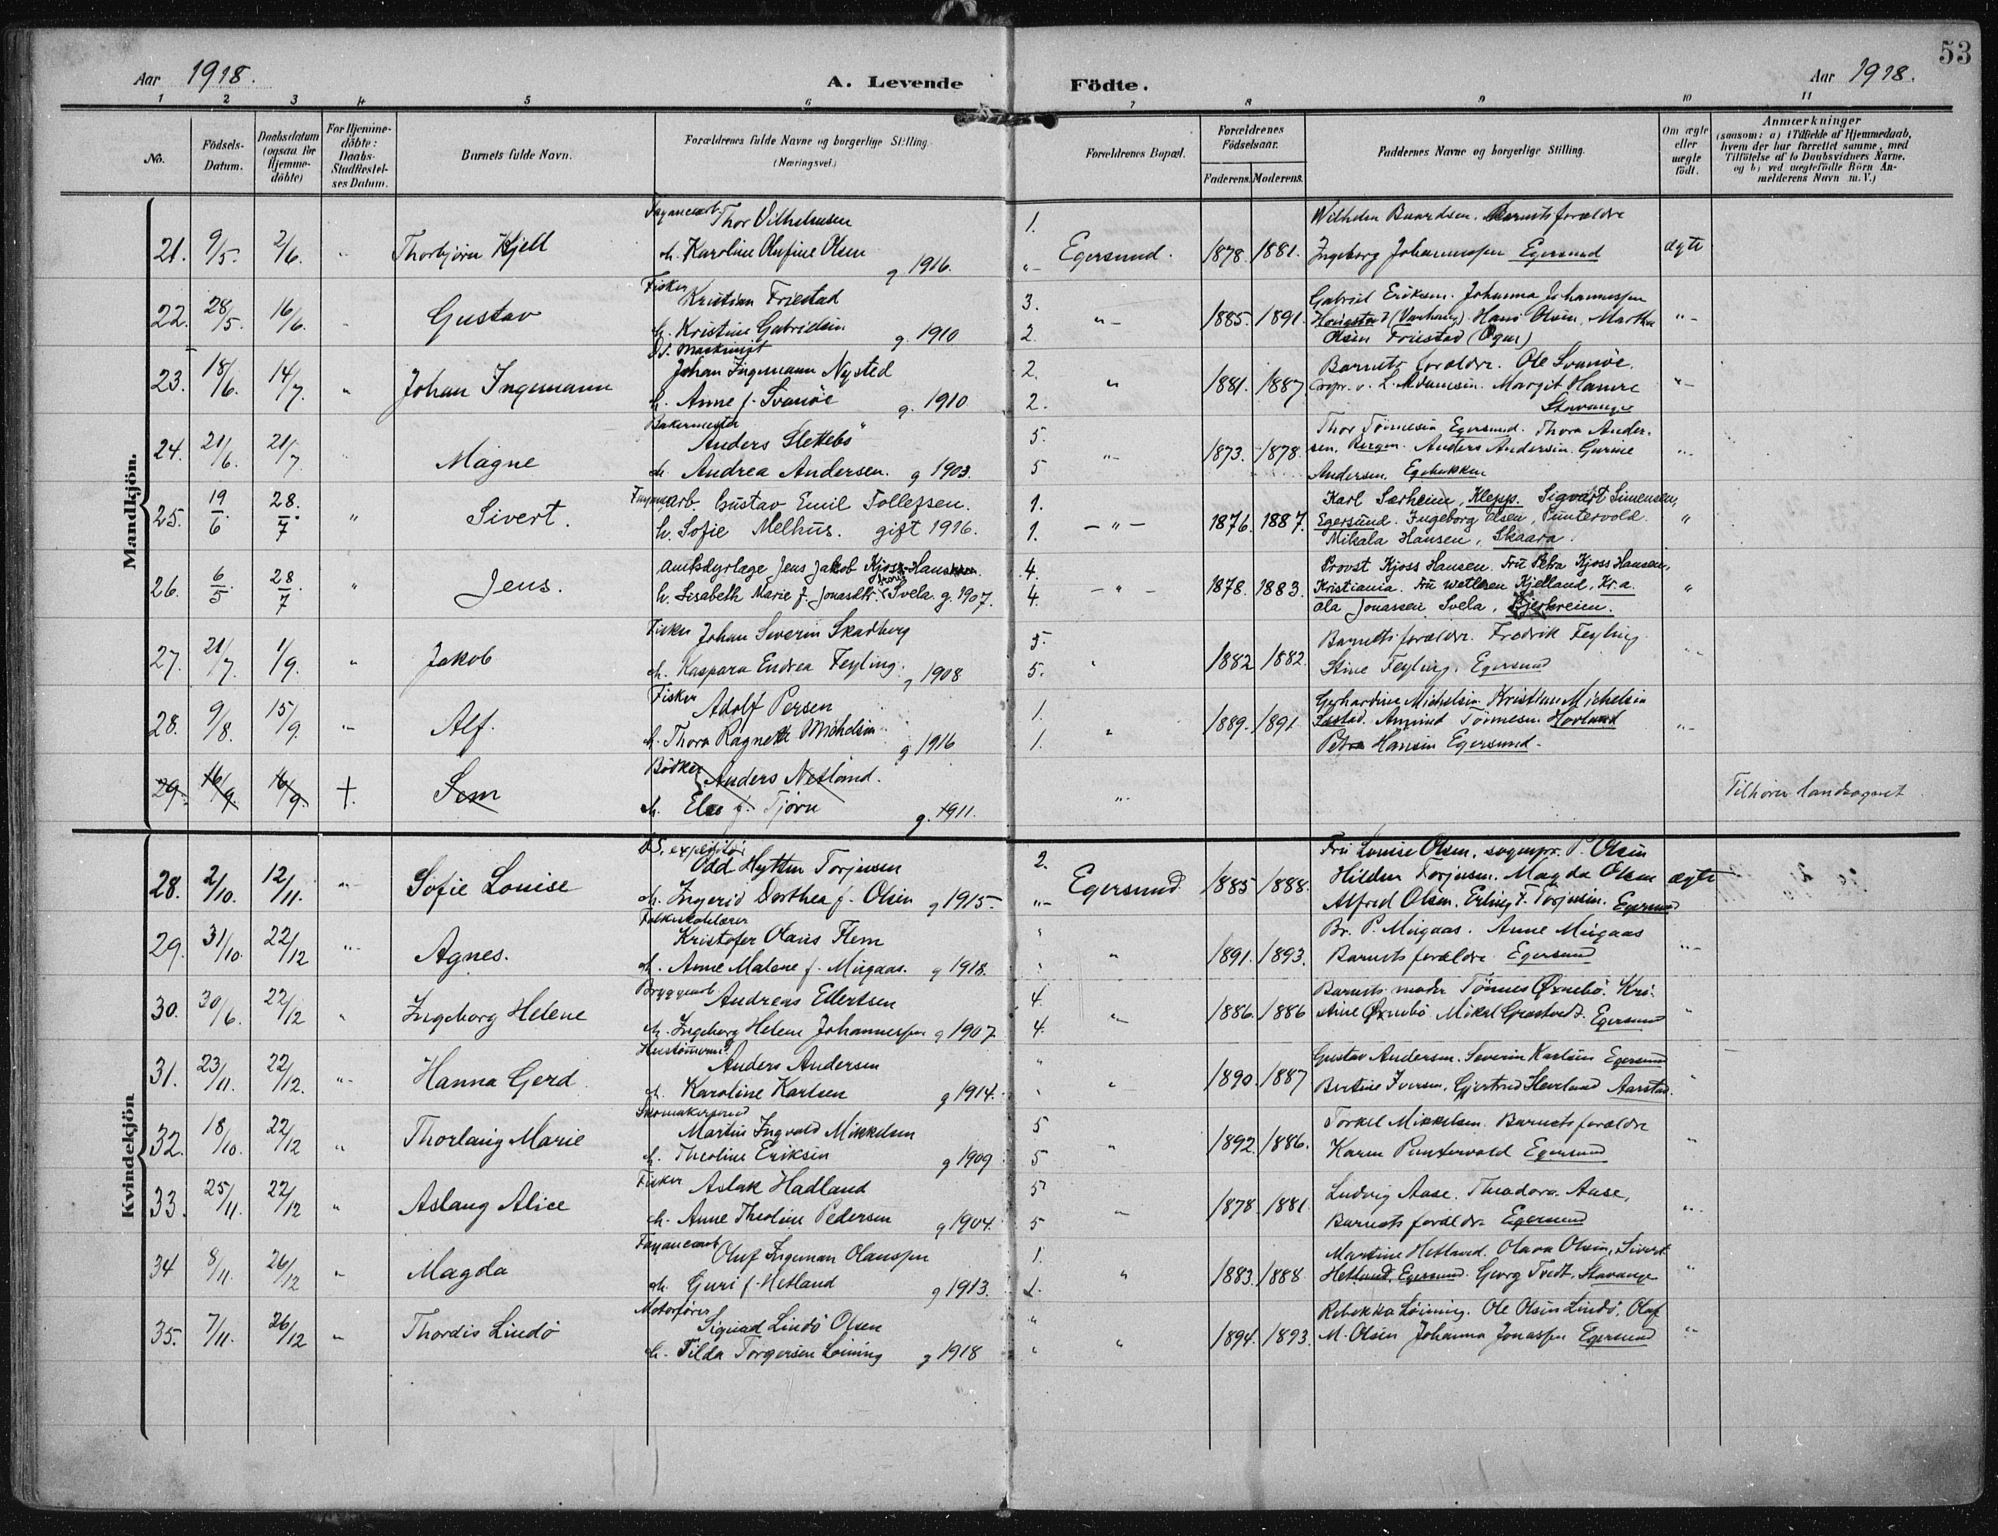 53
Aar 1918. A. Levende Födte. Aar 1918.
1 2 3 4 5 6 7 8 9 10 11
No.
Födsels-Datum.
Daabsdatum (ogsaa for Hjemme-döbte)
For Hjemme-döbte: Daabs-Stadfæstel-ses Datum.
Barnets fulde Navn.
Forældrenes fulde Navne og borgerlige Stilling. (Næringsvei.)
Forældrenes Bopæl.
Forældrenes Födselsaar.
Faderens. Moderens.
Faddernes Navne og borgerlige Stilling.
Om ægte eller uægte födt.
Anmærkninger
(saasom: a) i Tilfælde af Hjemmedaab,
hvem der har forrettet samme, med
Tilföielse af to Daabsvidners Navne.
og b) ved uægtefödte Börn An-
melderens Navn m. V.)
Mandkjön.
Fayancearb Thor Vilhelmsen 1. Wilhelm Baardsen. Barnets forældre
21. 9/5 2/6 Thorbjørn Kjell h. Karoline Olufine Olsen g 1916. Egersund. 1878 1881. Ingeborg Johannessen Egersund ægte
Fisker Kristian Friestad 3. Gabriel Eriksen. Johanna Johannessen
22. 28/5 16/6 Gustav h. Kristine Gabrielsen g. 1910 2. 1885. 1891. (Varhaug) Hans Olsen, Martha
Olsen Friestad (Ogna)
Johan Ingemann Nysted 2. Barnets forældre. Ole Svanöe.
23. 18/6 14/7 Johan Ingemann h. Anne f. Svanöe g. 1910 2. 1881. 1887 Margit Hamre
Stavanger
Bakermester Anders Slettebö 5. Thor Tönnesen Egersund. Thora Ander-
24. 21/6 21/7 Magne h. Andrea Andersen. g 1903. 5 1873. 1878. sen, Bergen. Anders Andersen. Gurine
Andersen Egebakken
Fayancearb. Gustav Emil Tollefsen. 1. Karl Særheim, Klepp. Sigvart Simensen,
25. 19/6 28/7 Sivert. h. Sofie Melhus. gift 1916. 1. 1876. 1887. Egersund. Ingeborg Olsen, Puntervold.
Mikala Hansen, Skaara.
Amtsdyrlæge Jens Jakob Kjoss-Hanssen. 4. Provst Kjoss Hansen. Fru Petra Kjoss Hansen,
26. 6/5 28/7 Jens. h. Lisabeth Marie f. Jonasdtr. Svela. g. 1907. 4. 1878. 1883. Kristiania. Fru Kjelland, Kr.a.
Ola Jonassen Svela, Bjerkreim.
Fisker Johan Severin Skadberg 5. Barnets forældre. Fredrik Feyling.
27. 21/7 1/9 Jakob h. Kaspara Endrea Feyling. g 1908 5. 1882 1882. Stine Feyling. Egersund
Fisker Adolf Persen 1. Gerhardine Michelsen Kristian Michelsen
28. 9/8. 15/9. Alf. h. Thora Ragneth Michelsen g 1916 1. 1889. 1891 Amund Tönnesen Hovland
Petra Hansen Egersund.
Bödker Anders Netland.
29. 16/9. 16/9. Sem h. Else f. Tjörn g. 1911. Tilhører landsognet
Kvindekjön
D.S. expeditör Odd Hytten Torjusen 2. Fru Louise Olsen, sognepr. P. Olsen
28. 2/10. 12/11. Sofie Louise h. Ingerid Dorthea f. Olsen g 1915. Egersund 1885 1888. Hildur Torjusen. Magda Olsen ægte
Alfred Olsen. Erling F. Torjusen. Egersund
Kristofer Olaus Flem Br. P. Mugaas. Anne Mugaas
29. 31/10 22/12 Agnes. h. Anne Malene f. Mugaas. g 1918. 1891. 1893. Barnets forældre Egersund
Bryggearb Andreas Eilertsen 4. Barnets moder Tönnes Øxnebö. Kri-
30. 30/6. 22/12 Ingeborg Helene h. Ingeborg Helene Johannessen g 1907 4. 1886. 1886 stine Øxnebö. Mikal Egersund
Anders Andersen Gustav Andersen. Severin Karlsen Egersund
31. 23/11. 22/12. Hanna Gerd h. Karoline Karlsen g 1914. 1890. 1887 Bertine Iversen. Gjertrud Hevland Aarstad.
Skomakersvend Martin Ingvald Mikkelsen 5 Torkel Mikkelsen. Barnets forældre
32. 18/10. 22/12 Thorlaug Marie h. Theoline Eriksen g 1909 5 1892. 1886. Karen Puntervold Egersund
Fisker Aslak Hadland 5 Ludvig Aase. Theodora Aase,
33. 25/11. 22/12 Aslaug Alice h. Anne Theoline Pedersen g 1904. 5 1878. 1881 Barnets forældre Egersund
Fayancearb Oluf Ingeman Olaussen 1. Martine Hetland. Olava Olsen, Sivert
34 8/11. 26/12 Magda h. Guri f. Hetland g 1913. 1. 1883. 1888 Hetland, Egersund. Georg Tvedt, Stavanger
Motorfører Sigurd Lindö Olsen Rebekka Löining. Ole Olsen Lindö, Oluf
35. 7/11. 26/12 Thordis Lindö h. Tilda Torgersen Löining g 1918 1894. 1893. M. Olsen Johanna Jonassen Egersund